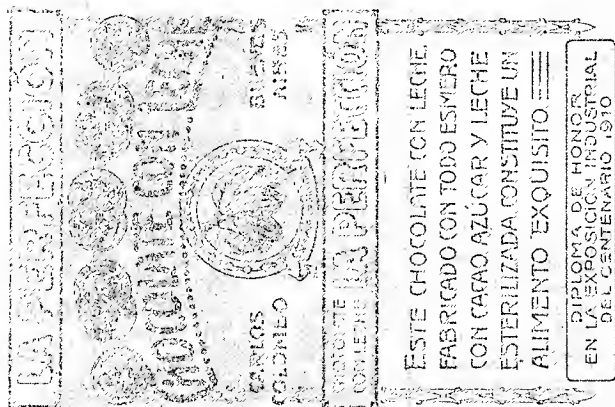 LA PERFECCIÓN
CHOCOLATE CON LECHE
CARLOS COLOMBO
BUENOS AIRES
CHOCOLATE CON LECHE LA PERFECCIÓN
ESTE CHOCOLATE CON LECHE,
FABRICADO CON TODO ESMERO
CON CACAO, AZÚCAR Y LECHE
ESTERILIZADA CONSTITUYE UN
ALIMENTO EXQUISITO.
DIPLOMA DE HONOR
EN LA EXPOSICIÓN INDUSTRIAL
DEL CENTENARIO 1910